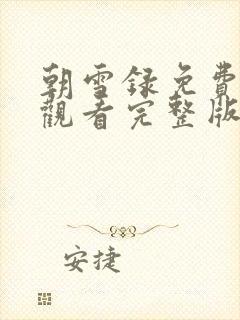 朝雪録免費
觀看完整版
安捷